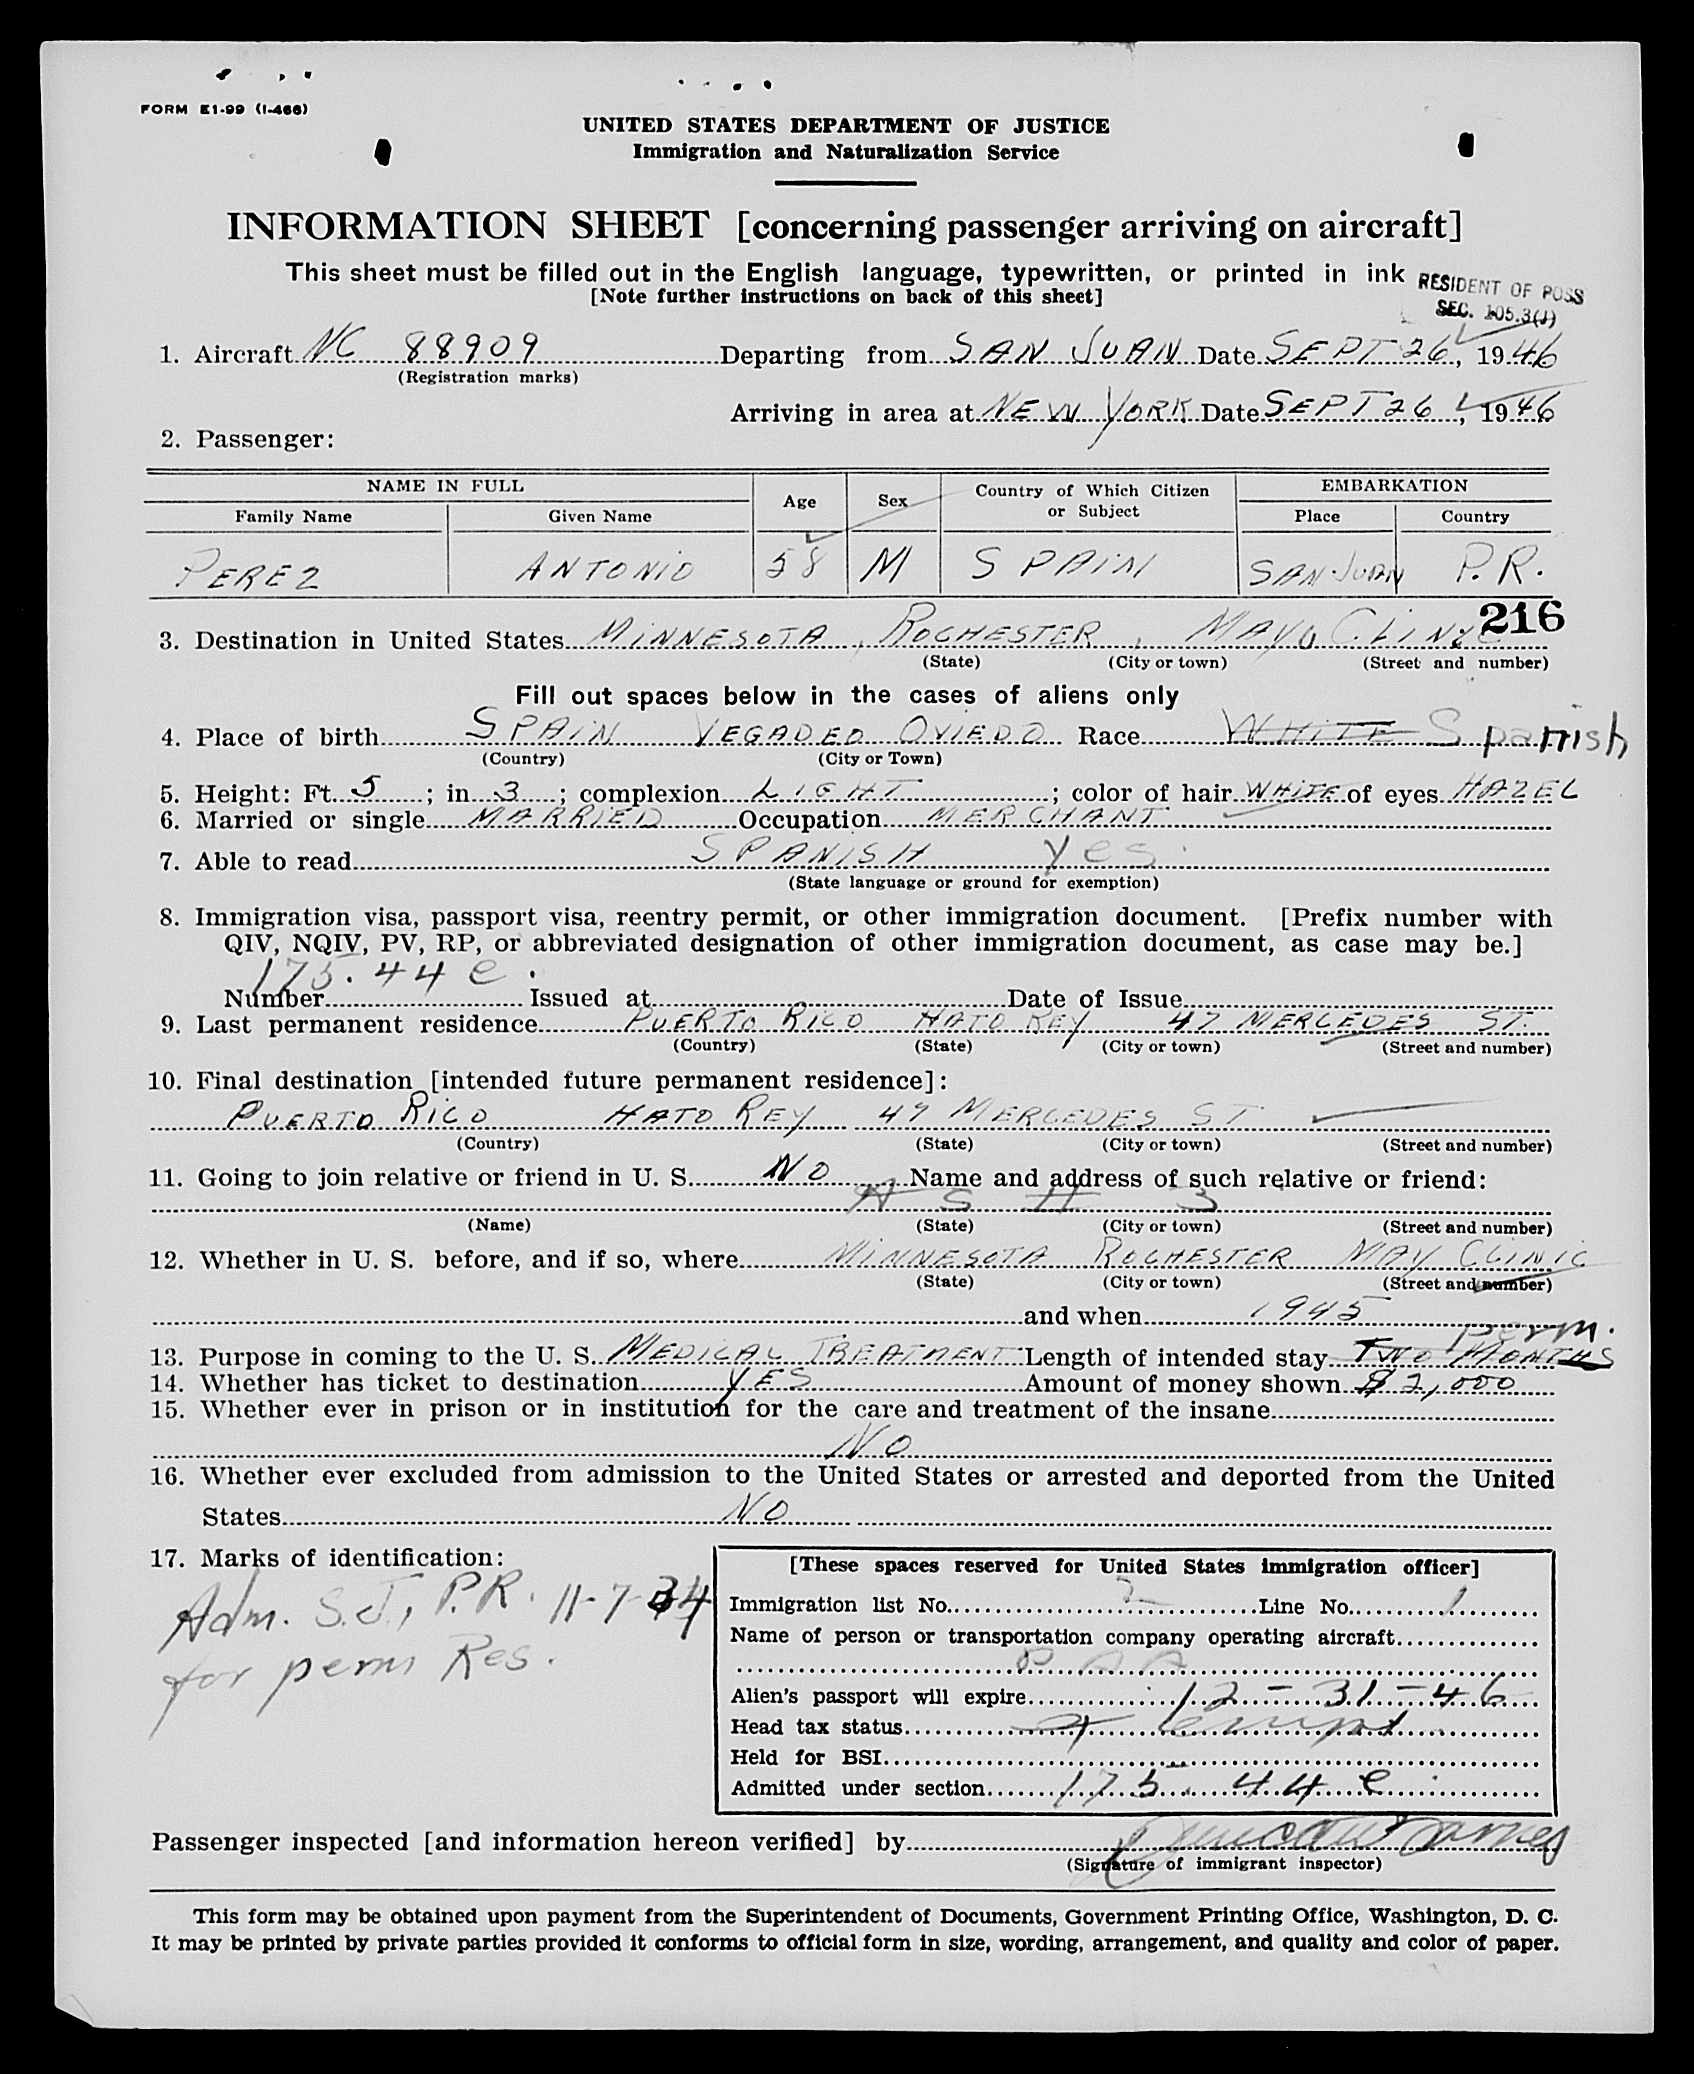 FORM E1-99 (I-466)
UNITED STATES DEPARTMENT OF JUSTICE
Immigration and Naturalization Service
INFORMATION SHEET [concerning passenger arriving on aircraft]
This sheet must be filled out in the English language, typewritten, or printed in ink
[Note further instructions on back of this sheet]
RESIDENT OF POSS
SEC. 105.3(J)
1. Aircraft NC 88909 Departing from SAN JUAN Date SEPT 26, 1946
(Registration marks)
Arriving in area at NEW YORK Date SEPT 26, 1946
2. Passenger:
NAME IN FULL Age Sex Country of Which Citizen or Subject EMBARKATION
Family Name Given Name Place Country
PEREZ ANTONIO 58 M SPAIN SAN JUAN P.R.
216
3. Destination in United States MINNESOTA, ROCHESTER, MAYO CLINIC
(State) (City or town) (Street and number)
Fill out spaces below in the cases of aliens only
4. Place of birth SPAIN VEGADEO OVIEDO Race WHITE Spanish
(Country) (City or Town)
5. Height: Ft. 5; in. 3; complexion LIGHT; color of hair WHITE of eyes HAZEL
6. Married or single MARRIED Occupation MERCHANT
7. Able to read SPANISH Yes
(State language or ground for exemption)
8. Immigration visa, passport visa, reentry permit, or other immigration document. [Prefix number with
QIV, NQIV, PV, RP, or abbreviated designation of other immigration document, as case may be.]
175.44 e.
Number Issued at Date of Issue
9. Last permanent residence PUERTO RICO HATO REY 47 MERCEDES ST.
(Country) (State) (City or town) (Street and number)
10. Final destination [intended future permanent residence]:
PUERTO RICO HATO REY 47 MERCEDES ST
(Country) (State) (City or town) (Street and number)
11. Going to join relative or friend in U. S. NO Name and address of such relative or friend:
(Name) (State) (City or town) (Street and number)
12. Whether in U. S. before, and if so, where MINNESOTA ROCHESTER MAY CLINIC
(State) (City or town) (Street and number)
and when 1945
perm.
13. Purpose in coming to the U. S. MEDICAL TREATMENT Length of intended stay TWO MONTHS
14. Whether has ticket to destination YES Amount of money shown $2,000
15. Whether ever in prison or in institution for the care and treatment of the insane
NO
16. Whether ever excluded from admission to the United States or arrested and deported from the United
States NO
17. Marks of identification:
Adm. S.J., P.R. 11-7-34
for perm Res.
[These spaces reserved for United States immigration officer]
Immigration list No. 2 Line No. 1
Name of person or transportation company operating aircraft
P A A
Alien's passport will expire 12-31-46
Head tax status exempt
Held for BSI
Admitted under section 175.44 e
Passenger inspected [and information hereon verified] by
(Signature of immigrant inspector)
This form may be obtained upon payment from the Superintendent of Documents, Government Printing Office, Washington, D. C.
It may be printed by private parties provided it conforms to official form in size, wording, arrangement, and quality and color of paper.